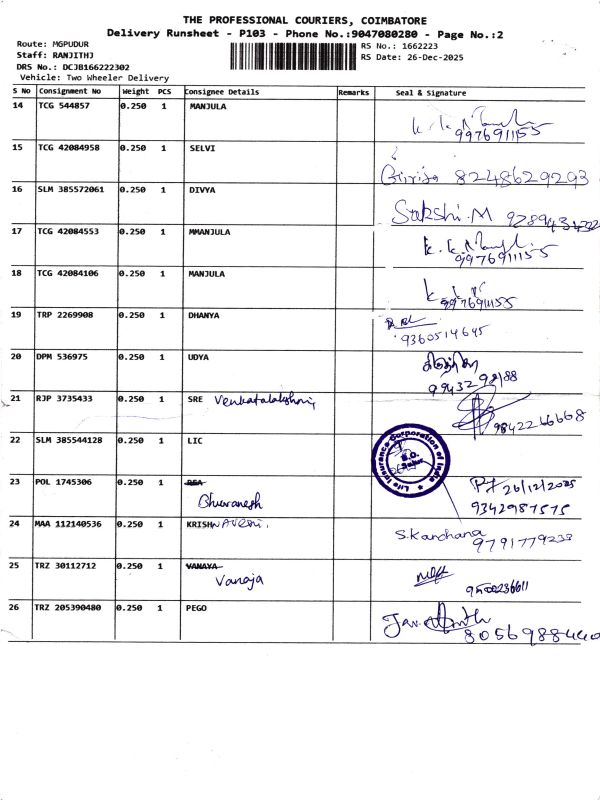 THE PROFESSIONAL COURIERS, COIMBATORE
Delivery Runsheet - P103 - Phone No.:9047080280 - Page No.:2
Route: MGPUDUR
RS No.: 1662223
Staff: RANJITHJ
RS Date: 26-Dec-2025
DRS No.: DCJB166222302
Vehicle: Two Wheeler Delivery
S No Consignment No Weight PCS Consignee Details Remarks Seal & Signature
14 TCG 544857 0.250 1 MANJULA
9976911155
15 TCG 42084958 0.250 1 SELVI
Girija 8248629293
16 SLM 385572061 0.250 1 DIVYA
Sakshi.M
17 TCG 42084553 0.250 1 MMANJULA
9976911155
18 TCG 42084106 0.250 1 MANJULA
9976911155
19 TRP 2269908 0.250 1 DHANYA
9360514645
20 DPM 536975 0.250 1 UDYA
9943298188
21 RJP 3735433 0.250 1 SRE Venkatalakshmi
9842266668
22 SLM 385544128 0.250 1 LIC
Life Insurance Corporation of India
S.O.
23 POL 1745306 0.250 1
26/12/2025
Bhuvanesh
9342987575
24 MAA 112140536 0.250 1 KRISHNAVENI.
S.Kanchana
9791779233
25 TRZ 30112712 0.250 1 VANAYA
Vanaja
9500236611
26 TRZ 205390480 0.250 1 PEGO
8056988440